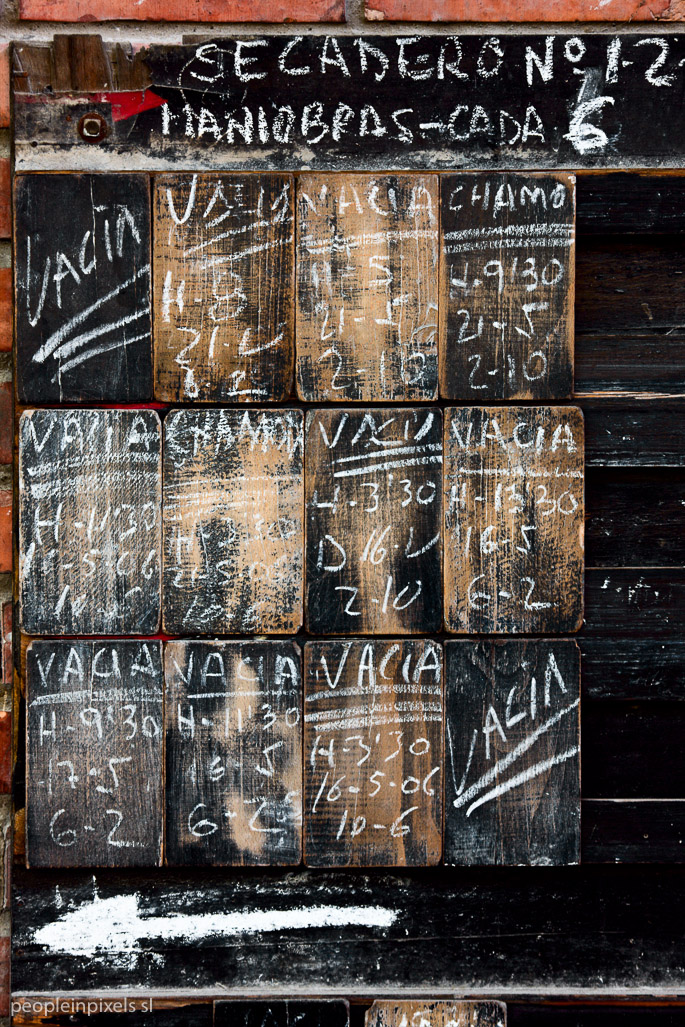 SECADERO Nº 1-2-
MANIOBRAS-CADA 6
VACIA
VACIA
21-
VACIA
H-5'
21-5
2-10
CHAMO
H.9'30
21-5
2-10
VACIA
H-11'30
16-5-06
10-6
CHAMON
VACIA
H-3'30
D 16-
2-10
VACIA
H-13'30
16-5
6-2
VACIA
H-9'30
17-5
6-2
VACIA
H-11'30
6-2
VACIA
H-3'30
16-5-06
10-6
VACIA
peopleinpixels sl